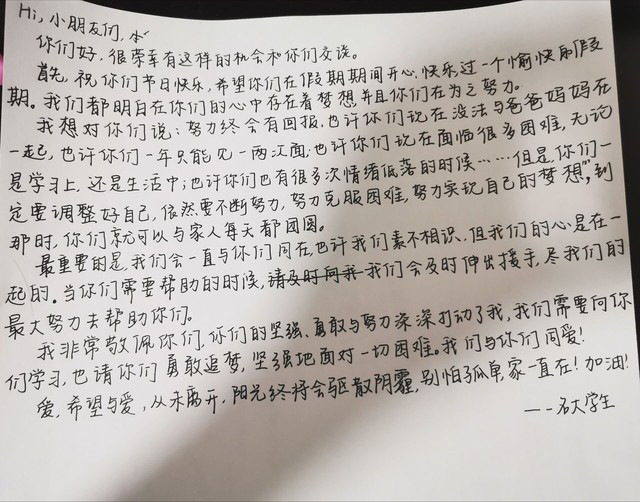 Hi,小朋友们,
你们好,很荣幸有这样的机会和你们交谈。
首先,祝你们节日快乐,希望你们在假期期间开心、快乐,过一个愉快的假
期。我们都明白在你们的心中存在着梦想,并且你们在为之努力。
我想对你们说:努力终会有回报,也许你们现在没法与爸爸妈妈在
一起,也许你们一年只能见一两次面;也许你们现在面临很多困难,无论
是学习上,还是生活中;也许你们也有很多次情绪低落的时候……但是,你们一
定要调整好自己,依然要不断努力,努力克服困难,努力实现自己的梦想,到
那时,你们就可以与家人每天都团圆。
最重要的是,我们会一直与你们同在,也许我们素不相识,但我们的心是在一
起的。当你们需要帮助的时候,请及时向我我们会及时伸出援手,尽我们的
最大努力去帮助你们。
我非常敬佩你们,你们的坚强、勇敢与努力深深打动了我,我们需要向你
们学习,也请你们勇敢追梦,坚强地面对一切困难。我们与你们同爱!
爱,希望与爱,从未离开,阳光终将会驱散阴霾,别怕孤单,家一直在!加油!
——一名大学生